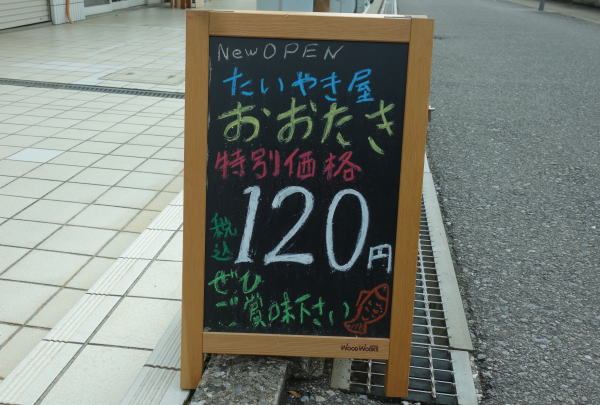 New OPEN
たいやき屋
おおたき
特別価格
税込 120円
ぜひ
ご賞味下さい
WOOD WORKS